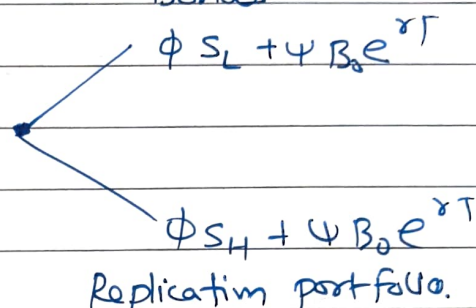 ϕ S_L + ψ B_0 e^{rT}
ϕ S_H + ψ B_0 e^{rT}
Replication portfolio.